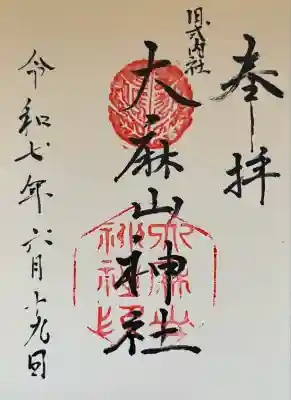 奉拝
旧式内社
大麻山神社
令和七年六月十九日